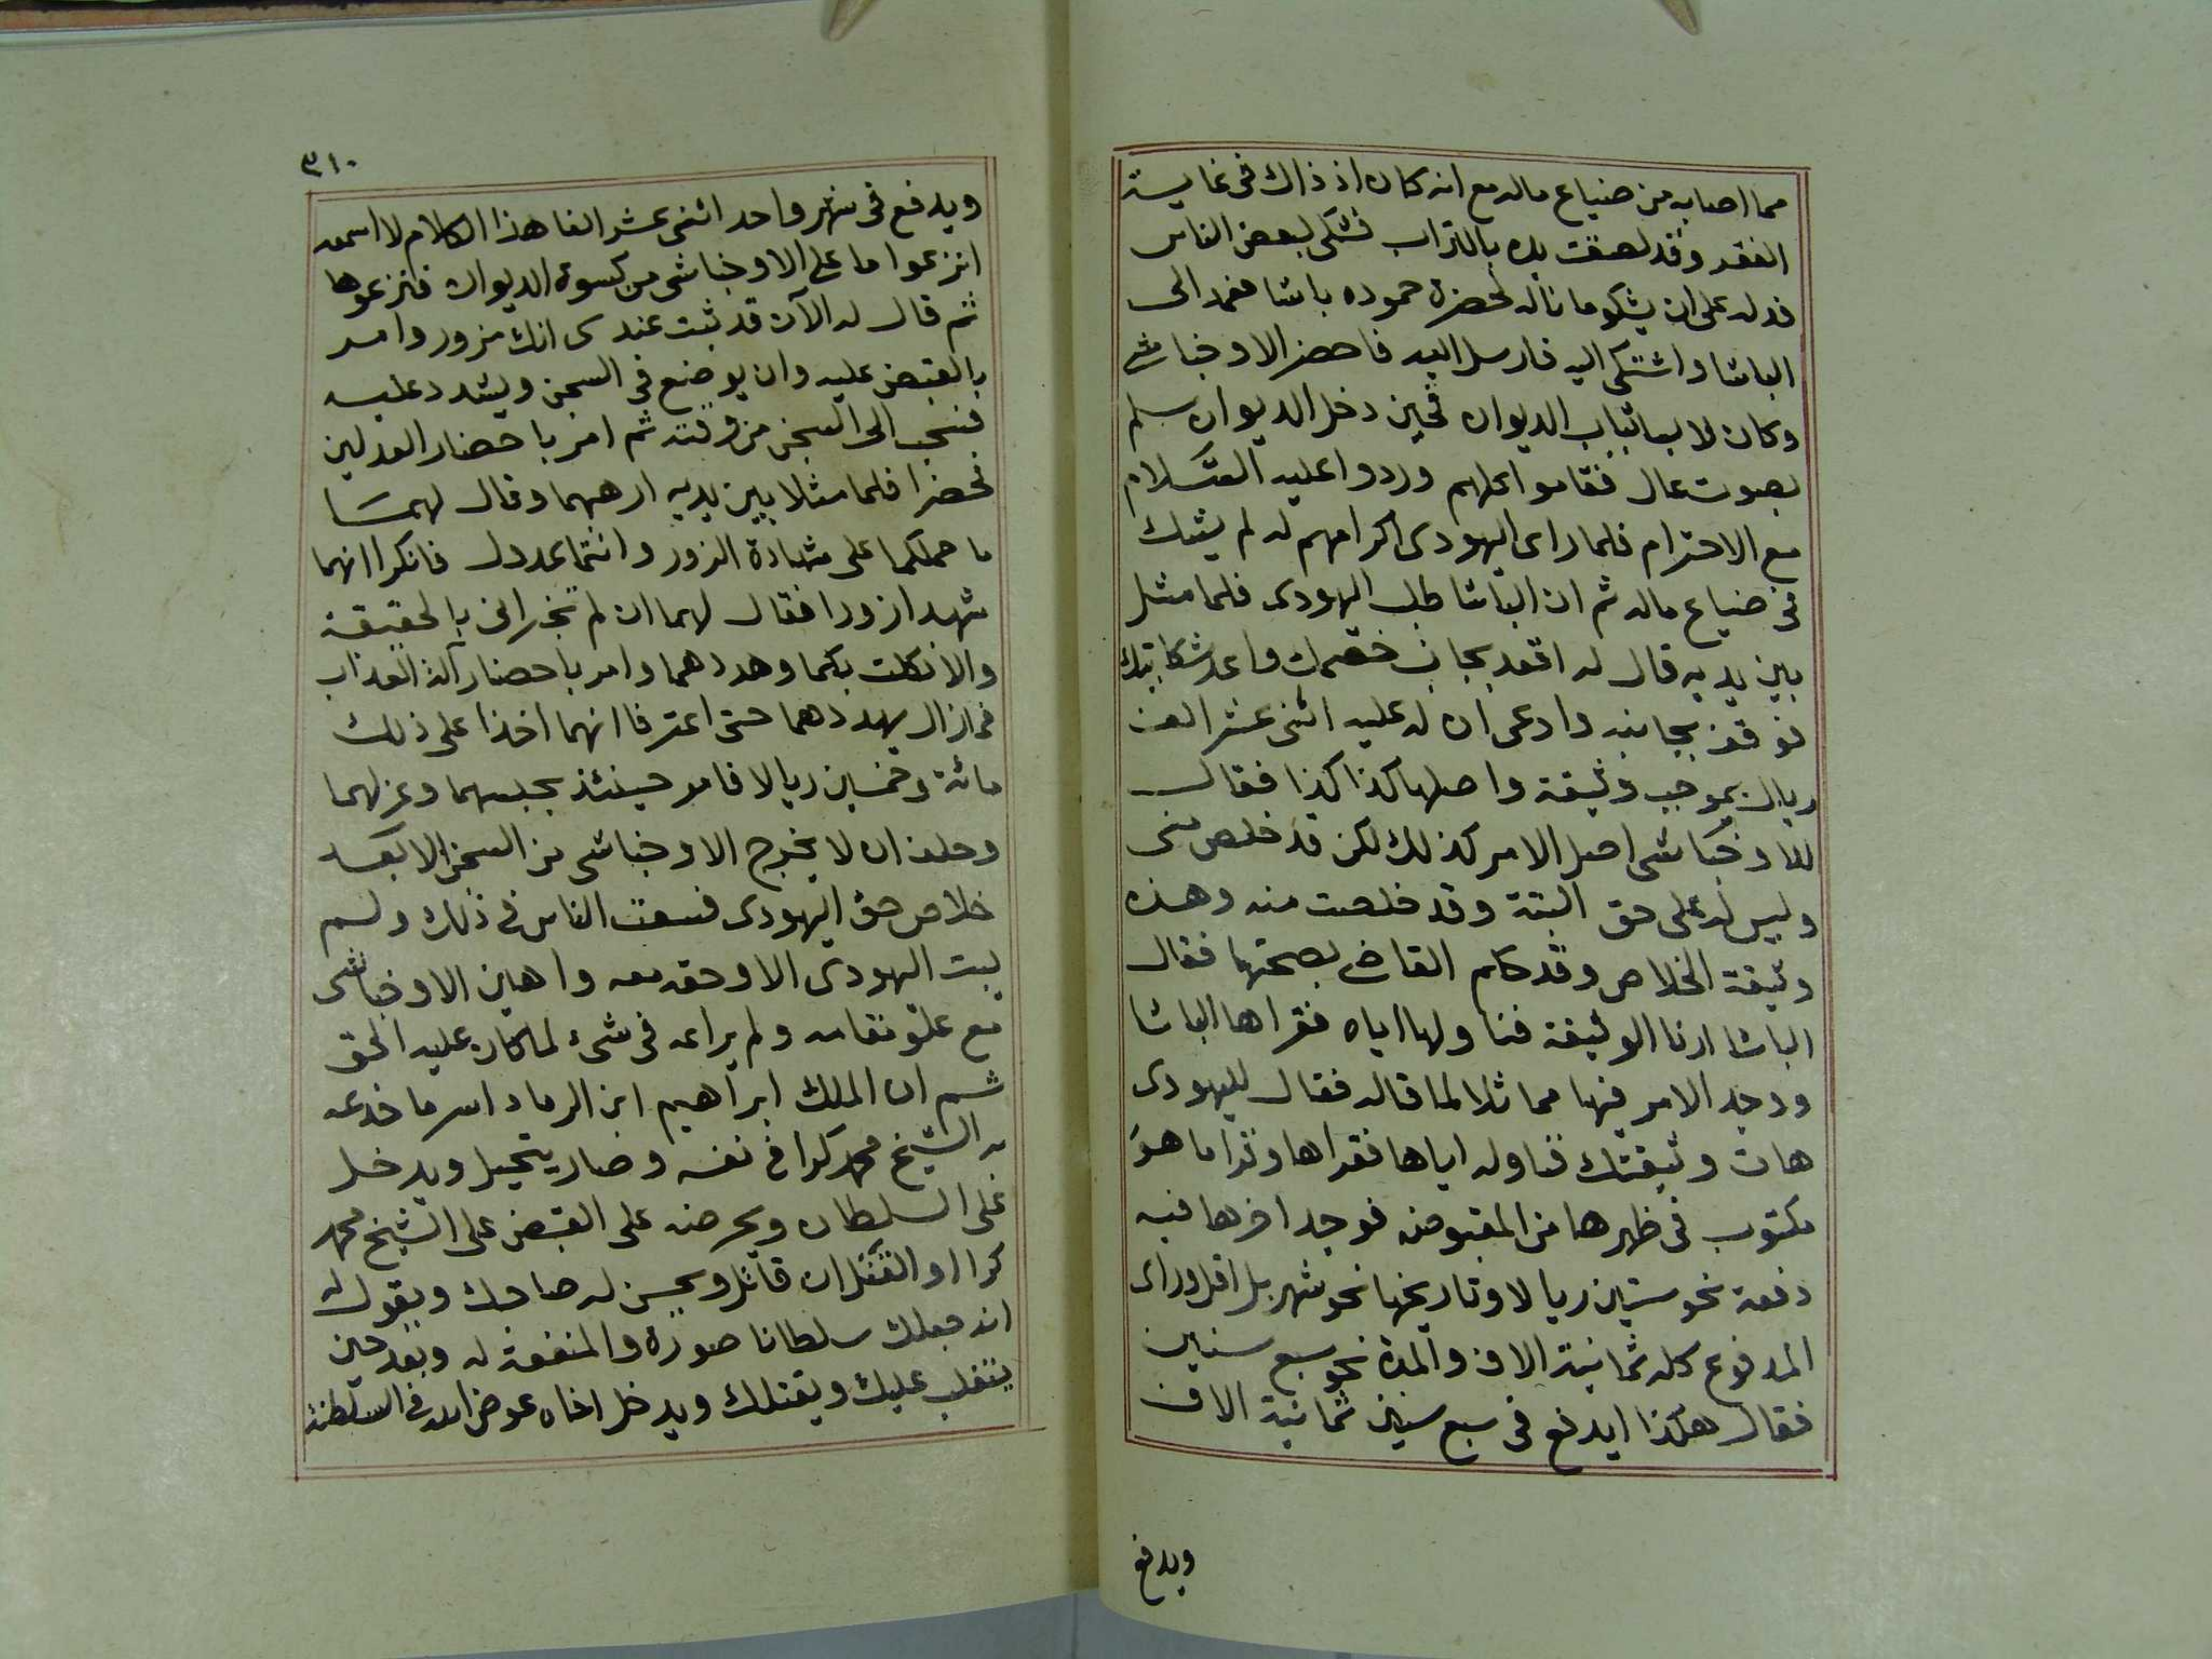 مما اصابه من ضياع ماله مع انه كان اذ ذاك فى غاية
الفقر وقد لصقت يده بالتراب فشكى لبعض الناس
فدله على ان يشكو ما ناله لحضرة حموده باشا فعمد الى
الباشا واشتكى اليه فارسل اليه فاحضر الاوخباشى
وكان لابسا ثياب الديوان فحين دخل الديوان سلم
بصوت عال فقاموا كلهم وردوا عليه السلام
مع الاحترام فلما راى اليهودى اكرامهم له لم يشك
فى ضياع ماله ثم ان الباشا طلب اليهودى فلما مثل
بين يديه قال له اقعد بجانب خصمك واعد شكايتك
فوقف بجانبه وادعى ان له عليه اثنى عشر الف
ريال بموجب وثيقة واصلها كذا كذا فقال
الاوخباشى اصل الامر كذلك لكن قد خلص منى
وليس له على حق البتة وقد خلصت منه وهذه
وثيقة الخلاص وقد حكم القاضى بصحتها فقال
الباشا ارنا الوثيقة فناولها اياه فقراها الباشا
ووجد الامر فيها مماثلا لما قاله فقال لليهودى
هات وثيقتك فناوله اياها فقراها وقرا ما هو
مكتوب فى ظهرها من المقبوض فوجد اخرها فيه
دفعة نحو ستين ريالا وتاريخها نحو شهر بل اقل وراى
المدفوع كله ثمانية الاف والمدة نحو سبع سنين
فقال هكذا ايدفع فى سبع سنين ثمانية الاف
ويدفع
٣١٠
ويدفع فى شهر واحد اثنى عشر الفا هذا الكلام لا اسمعه
انزعوا ما على الاوخباشى من كسوة الديوان فنزعوها
ثم قال له الآن قد ثبت عندى انك مزور وامر
بالقبض عليه وان يوضع فى السجن ويشدد عليه
فسحب الى السجن من وقته ثم امر باحضار العدلين
فحضرا فلما مثلا بين يديه ارهبهما وقال لهما
ما حملكما على شهادة الزور وانتما عدول فانكرا انهما
شهدا زورا فقال لهما ان لم تخبرانى بالحقيقة
والا نكلت بكما وهددهما وامر باحضار آلة العذاب
فما زال يهددهما حتى اعترفا انهما اخذا على ذلك
مائة وخمسين ريالا فامر حينئذ بحبسهما وعزلهما
وحلف ان لا يخرج الاوخباشى من السجن الا بعد
خلاص حق اليهودى فسعت الناس فى ذلك ولم
يبت اليهودى الا وحقه معه واهين الاوخباشى
مع علو مقامه ولم يراعه فى شئ لما كان عليه الحق
ثم ان الملك ابراهيم ابن الرماد اسر ما خدعه
به الشيخ محمد كرا فى نفسه وصار يتحيل ويدخل
على السلطان ويحرضه على القبض على الشيخ محمد
كرا او القتل ان قاتل ويحسن له صاحبك ويقول له
انه جعلك سلطانا صورة والمنفعة له وبعد حين
ينقلب عليك ويقتلك ويدخل اخاه عوض الله فى السلطنة